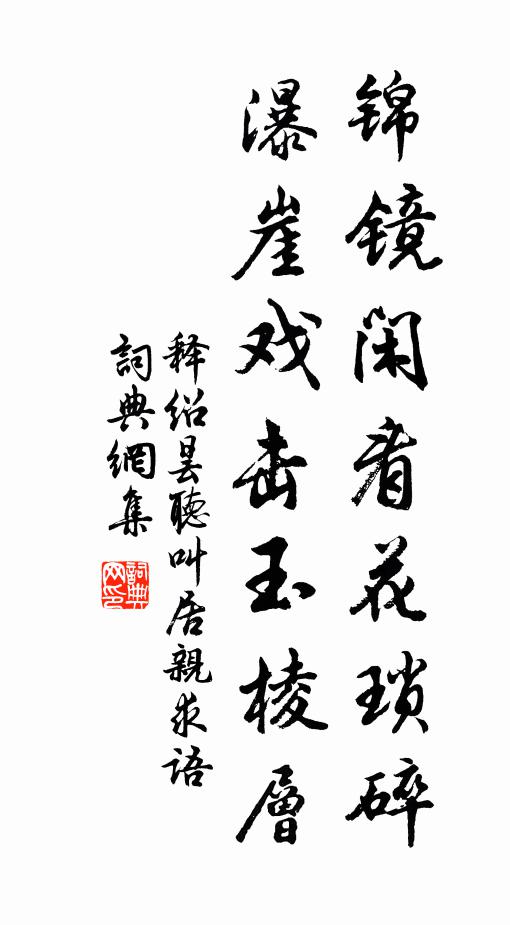 锦镜闲看花琐碎
瀑崖戏击玉棱層
释绍昙聽叫居親求语
詞典網集
詞典网印